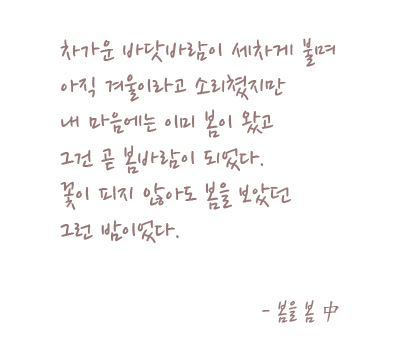 차가운 바닷바람이 세차게 불며
아직 겨울이라고 소리쳤지만
내 마음에는 이미 봄이 왔고
그건 곧 봄바람이 되었다.
꽃이 피지 않아도 봄을 보았던
그런 밤이었다.
- 봄을 봄 中